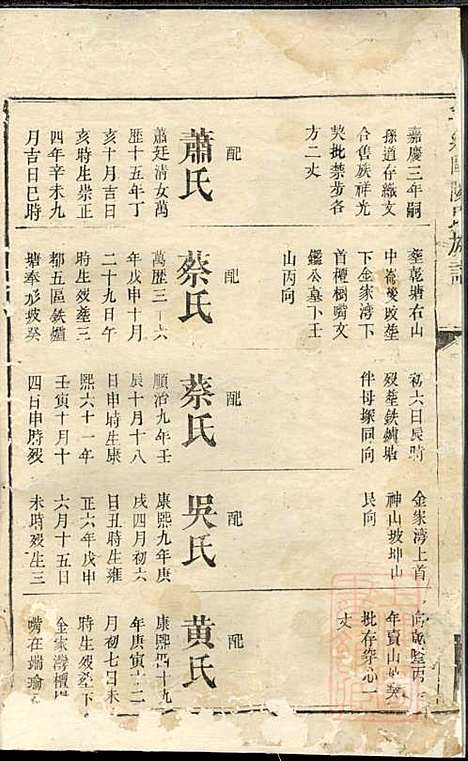 嘉慶三年嗣
孫道存織文
合售族祥光
契批禁步各
方二丈
配
蕭氏
蕭廷清女萬
歷十五年丁
亥十月吉日
亥時生崇正
四年辛未九
月吉日巳時
塟乾塘右山
下金家湾下
首檀樹嘴文
鑑公墓下壬
山丙向
配
蔡氏
萬歷三十六
年戊申十月
二十九日午
時生歿塟三
都五區鉄爐
塘奉形坡癸
初六日辰時
歿塟鉄爐塘
伴母塚同向
配
蔡氏
順治九年壬
辰十月十八
日申時生康
熙六十一年
壬寅十月十
四日申時歿
金家湾上首
神山坡坤山
艮向
配
吳氏
康熙九年庚
戌四月初六
日丑時生雍
正六年戊申
六月十五日
未時歿生三
年賣山
批存穿心一
丈
配
黃氏
康熙四十九
年庚寅十二
月初七日未
時生歿塟下
金家灣檀
嘴在端瑜